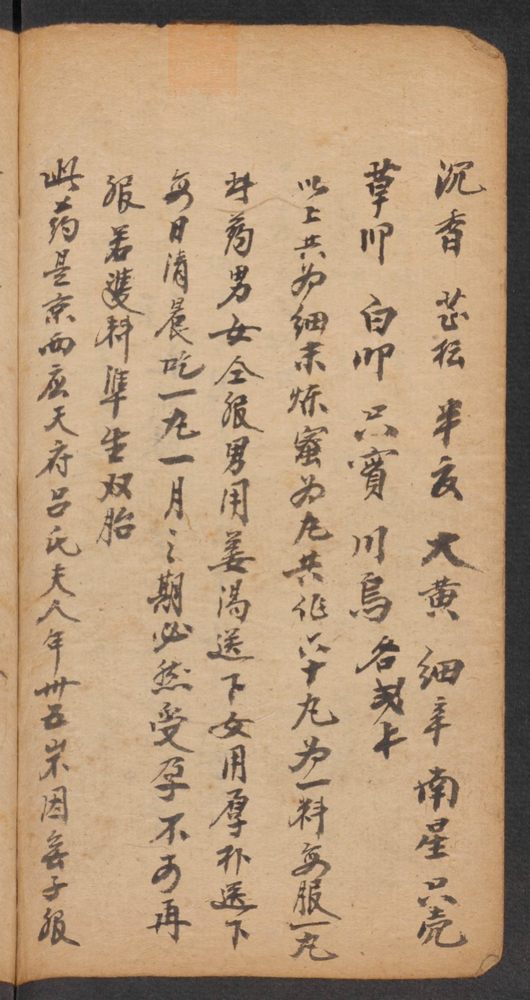 沉香 苍松 半夏 大黄 细辛 南星 只壳
草叩 白叩 只實 川烏 各弍卜
以上共为细末炼蜜为丸共作六十丸为一料每服一丸
此药男女仝服男用姜湯送下女用厚朴送下
每日清晨吃一丸一月之期必然受孕不可再
服若雙料準生双胎
此药是京西应天府吕氏夫人年卅五岁因無子服